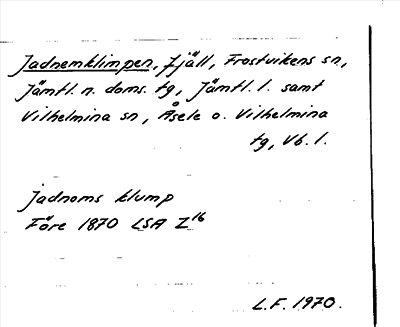 Jadnemklimpen, fjäll, Frostvikens sn,
Jämtl. n. doms. tg, Jämtl. l. samt
Vilhelmina sn, Åsele o. Vilhelmina
tg, Vb. l.
Jadnoms klump
Före 1870 LSA Z16
L.F. 1970.